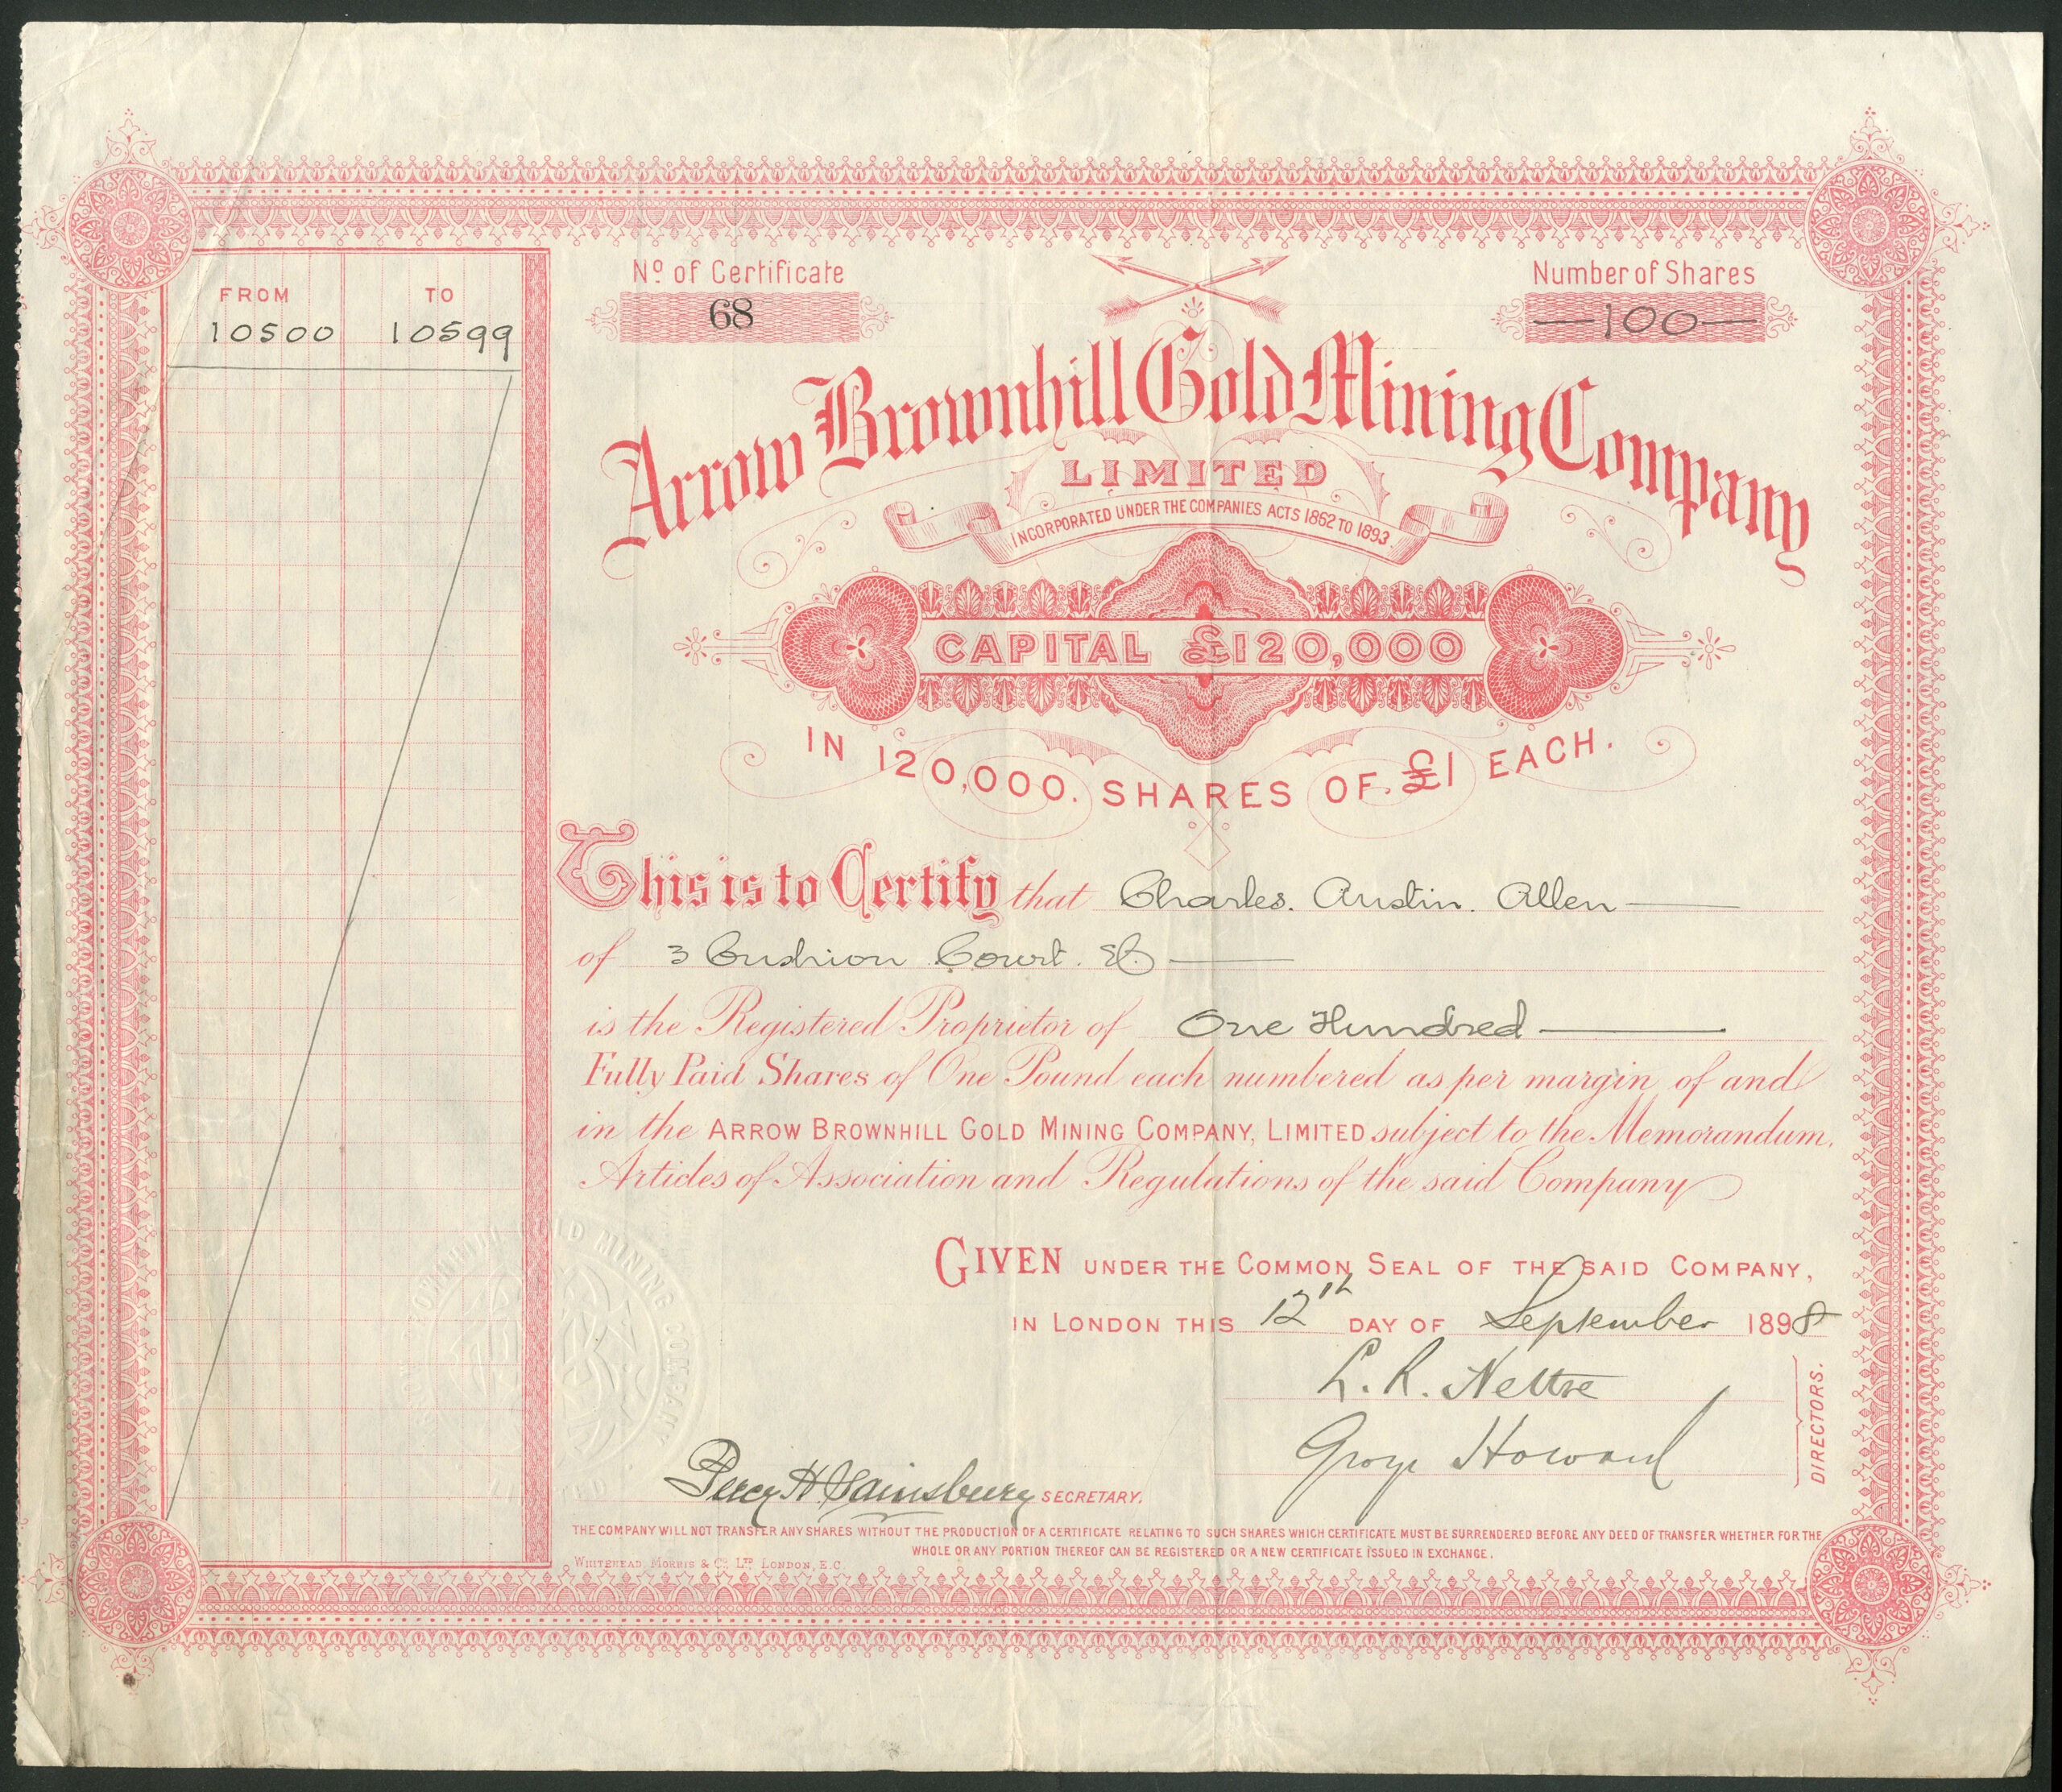 FROM TO
10500 10599
Nº of Certificate
68
Number of Shares
100
Arrow Brownhill Gold Mining Company
LIMITED
INCORPORATED UNDER THE COMPANIES ACTS 1862 TO 1893.
CAPITAL £120,000
IN 120,000. SHARES OF. £1 EACH.
This is to Certify that Charles. Austin. Allen
of 3 Cushion Court. EC
is the Registered Proprietor of One Hundred
Fully Paid Shares of One Pound each numbered as per margin of and
in the ARROW BROWNHILL GOLD MINING COMPANY, LIMITED subject to the Memorandum,
Articles of Association and Regulations of the said Company
GIVEN UNDER THE COMMON SEAL OF THE SAID COMPANY,
IN LONDON THIS 12th DAY OF September 1898
L. R.
George Howard
DIRECTORS.
Percy H. Sainsbury SECRETARY.
THE COMPANY WILL NOT TRANSFER ANY SHARES WITHOUT THE PRODUCTION OF A CERTIFICATE RELATING TO SUCH SHARES WHICH CERTIFICATE MUST BE SURRENDERED BEFORE ANY DEED OF TRANSFER WHETHER FOR THE
WHOLE OR ANY PORTION THEREOF CAN BE REGISTERED OR A NEW CERTIFICATE ISSUED IN EXCHANGE.
WHITEHEAD, MORRIS & Co. LTD. LONDON, E.C.
ARROW BROWNHILL GOLD MINING COMPANY
LIMITED